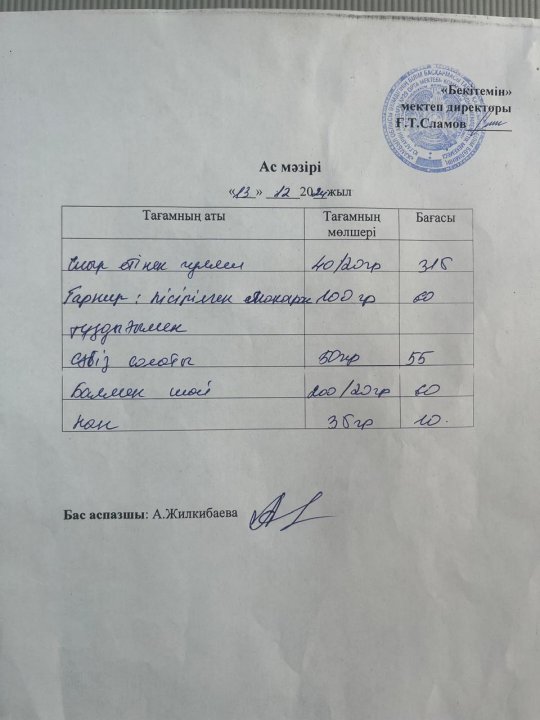 «Бекітемін»
мектеп директоры
Ғ.Т.Сламов
Ас мәзірі
«13» 12 2024жыл
Тағамның аты Тағамның мөлшері Бағасы
Сиыр етінен гуляш 40/20гр 315
Гарнир: пісірілген макарон 100гр 60
тұздығымен
Сәбіз салаты 50гр 55
Балмен шай 200/20гр 60
Нан 35гр 10.
Бас аспазшы: А.Жилкибаева